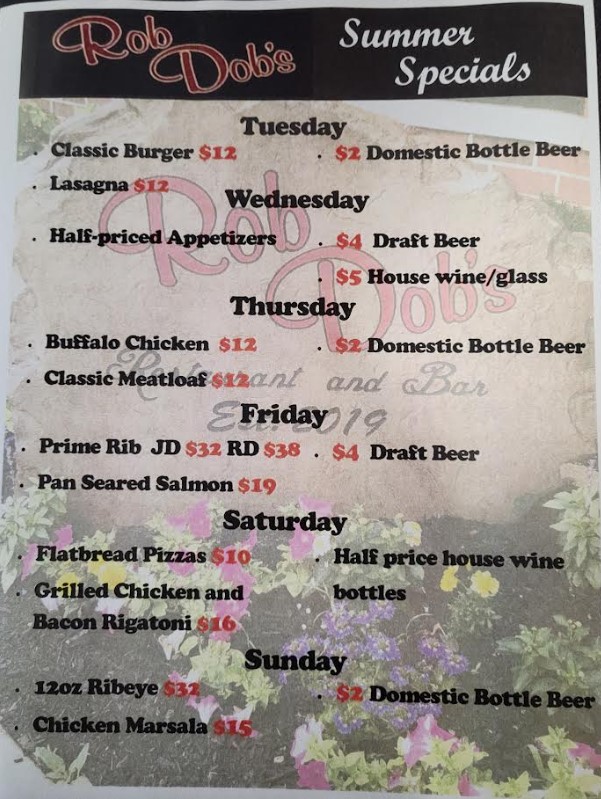 Rob Dob's
Summer Specials
Tuesday
· Classic Burger $12
· $2 Domestic Bottle Beer
· Lasagna $12
Wednesday
· Half-priced Appetizers
· $4 Draft Beer
· $5 House wine/glass
Thursday
· Buffalo Chicken $12
· $2 Domestic Bottle Beer
· Classic Meatloaf $12
Friday
· Prime Rib JD $32 RD $38
· $4 Draft Beer
· Pan Seared Salmon $19
Saturday
· Flatbread Pizzas $10
· Half price house wine
bottles
· Grilled Chicken and
Bacon Rigatoni $16
Sunday
· 12oz Ribeye $32
· $2 Domestic Bottle Beer
· Chicken Marsala $15
Rob
Dob's
Restaurant and Bar
Est. 2019